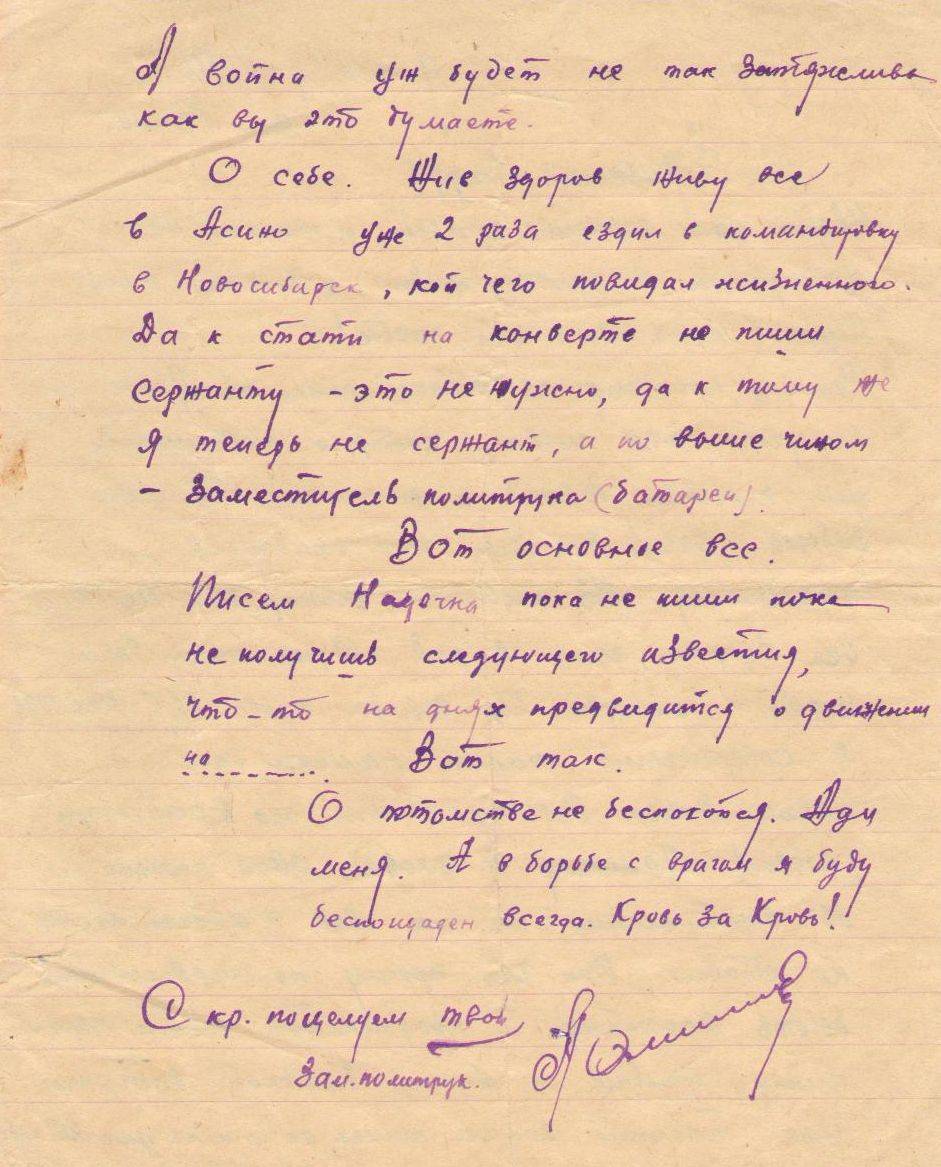 А война уж будет не так затяжлива
как вы это думаете.
О себе. Жив здоров живу все
в Асино уже 2 раза ездил в командировку
в Новосибирск, кой чего повидал жизненного.
Да к стати на конверте не пиши
сержанту - это не нужно, да к тому же
я теперь не сержант, а по выше чином
- Заместитель политрука (батареи).
Вот основное все.
Писем Надечка пока не пиши пока
не получишь следующего известия,
что-то на днях предвидится о движении
на ......... Вот так.
О потомстве не беспокойся. Жди
меня. А в борьбе с врагом я буду
беспощаден всегда. Кровь за Кровь!
С кр. поцелуем твой
Зам. политрук.